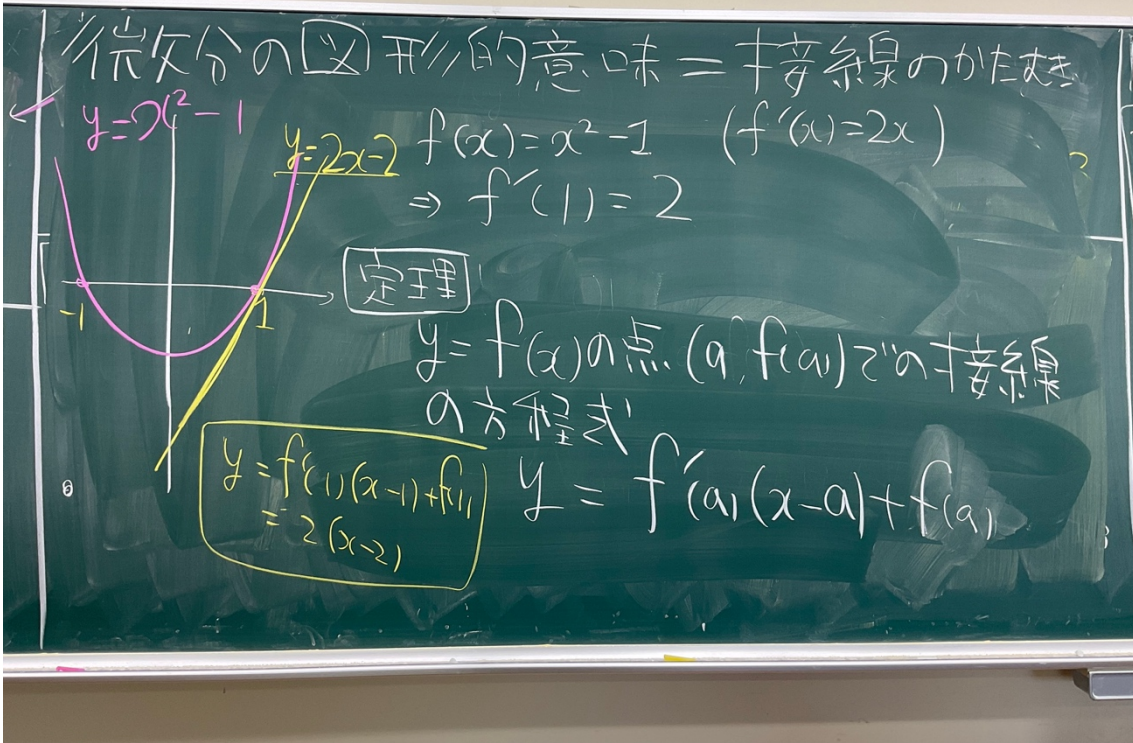 微分の図形的意味=接線のかたむき
y=x²-1
y=2x-2
f(x)=x²-1 (f'(x)=2x)
⇒ f'(1)=2
-1
1
定理
y=f(x)の点(a,f(a))での接線
の方程式
y=f'(a)(x-a)+f(a)
y=f'(1)(x-1)+f(1)
=2(x-2)